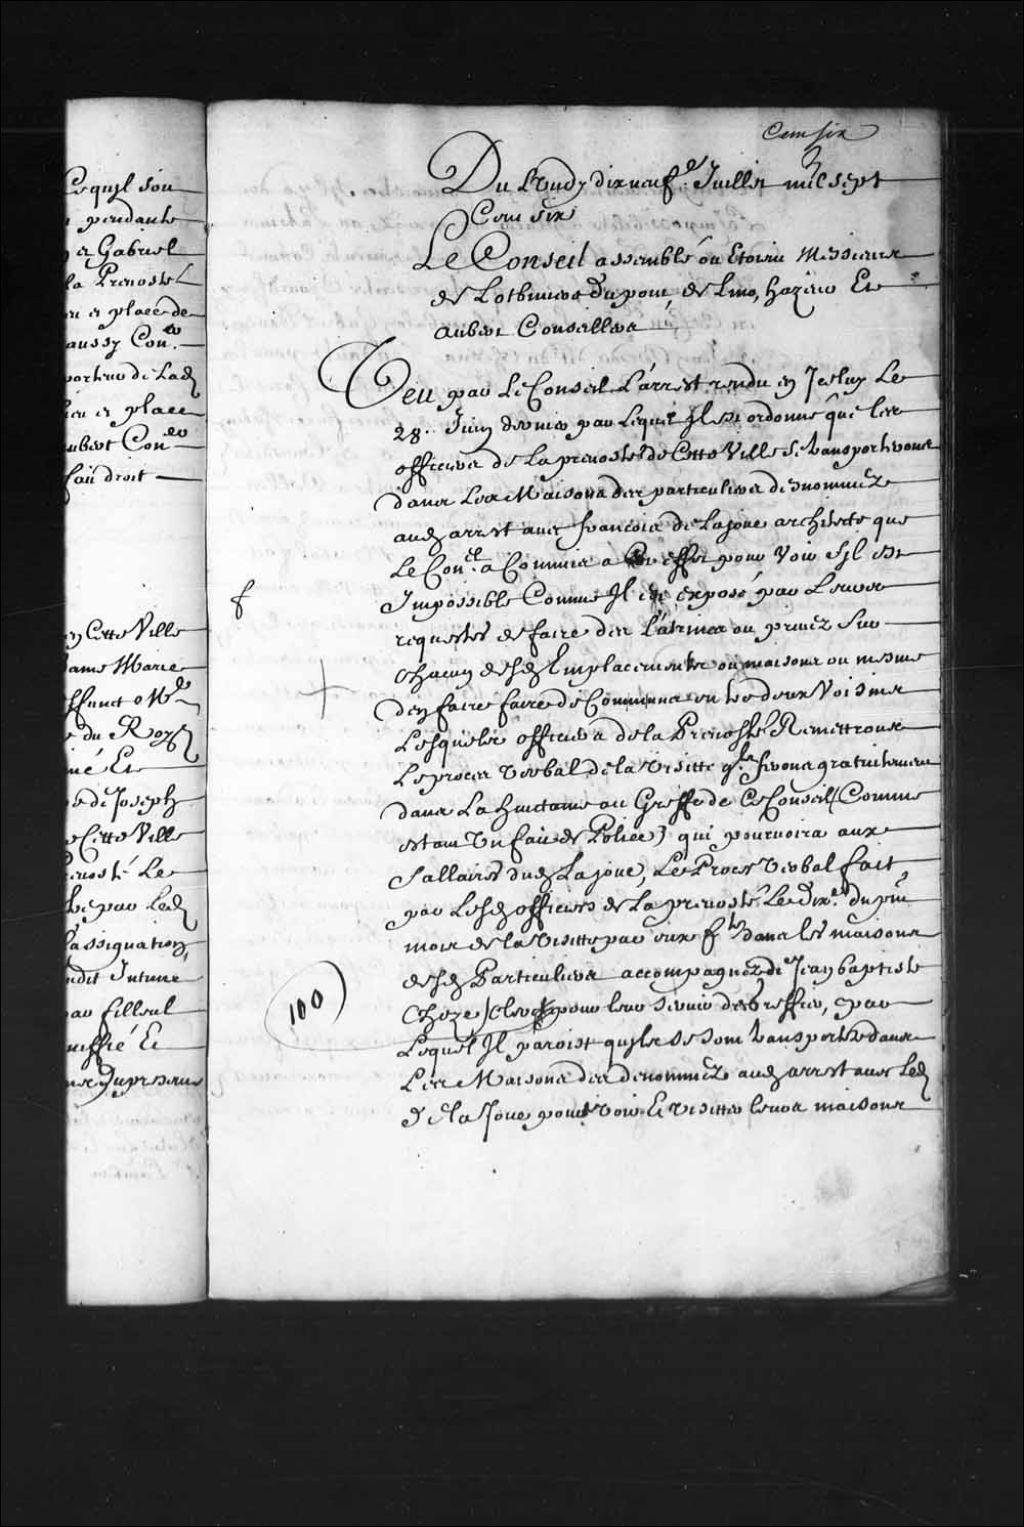 Ce quyl sou
pendante
et Gabriel
la Prevosté
en place de
aussy Con.er
porteur de Lad
lieu et place
aubert Con.er
fait droit
en Cette Ville
dame Marie
deffunct M.e
du Roy
né Et
de Joseph
Cette Ville
prevosté Le
par Led
l'assignation
ledit Intimé
par filleul
greffié Et
Cent six
Du Lundy dixneuf.e Juillet mil sept
Cent six
Le Conseil assemblé ou Etoient Messieurs
de Lotbiniere Dupont, de Lino, hazeur Et
aubert Conseillers
Veu par Le Conseil L'arrest rendu en Jceluy Le
28. Juin dernier par Lequel Jl est ordonné que les
officiers de La prevosté de Cette Ville se transporteront
dans Les Maisons des particuliers desnommez
aud arrest avec francois de Lajoue architecte que
Le Con.el a Commis a Cet effet pour Voir s'jl est
Jmpossible Comme Jl est exposé par Leurs
requestes de faire des Latrines ou privez Sur
Chacun desd Emplacements ou maisons ou mesme
den faire faire de Communes entre deux Voisins
Lesquels officiers de la Prevosté Remettront
Le procez verbal de la visitte q.ls feront gratuitement
dans La huictaine au Greffe de Ce Conseil (Comme
estant Un fait de Police) qui pourvoira aux
Sallaires dud Lajoue, Le Procez verbal fait
par Lesd officiers de La prevosté Le dix.e du pnt
mois de la visitte par eux f.te dans les maisons
desd Particuliers accompagnez de Jean baptiste
Choze Clerc pour leur servir de greffier, par
Lequel Jl paroist quyls se sont transportez dans
Les Maisons des denommez aud arrest avec Led
de la Joue pour voir Et visitter leurs maisons
f
100